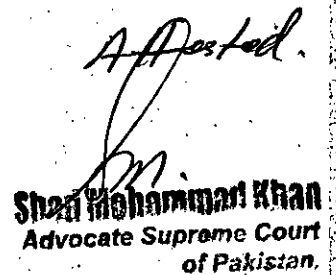 Attested.
Shad Mohammad Khan
Advocate Supreme Court
of Pakistan.